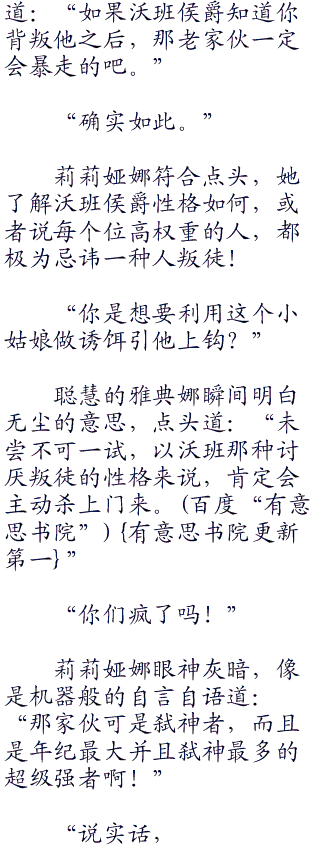 道：“如果沃班侯爵知道你
背叛他之后，那老家伙一定
会暴走的吧。”
“确实如此。”
莉莉娅娜符合点头，她
了解沃班侯爵性格如何，或
者说每个位高权重的人，都
极为忌讳一种人叛徒！
“你是想要利用这个小
姑娘做诱饵引他上钩？”
聪慧的雅典娜瞬间明白
无尘的意思，点头道：“未
尝不可一试，以沃班那种讨
厌叛徒的性格来说，肯定会
主动杀上门来。(百度“有意
思书院”) {有意思书院更新
第一} ”
“你们疯了吗！”
莉莉娅娜眼神灰暗，像
是机器般的自言自语道：
“那家伙可是弑神者，而且
是年纪最大并且弑神最多的
超级强者啊！”
“说实话，